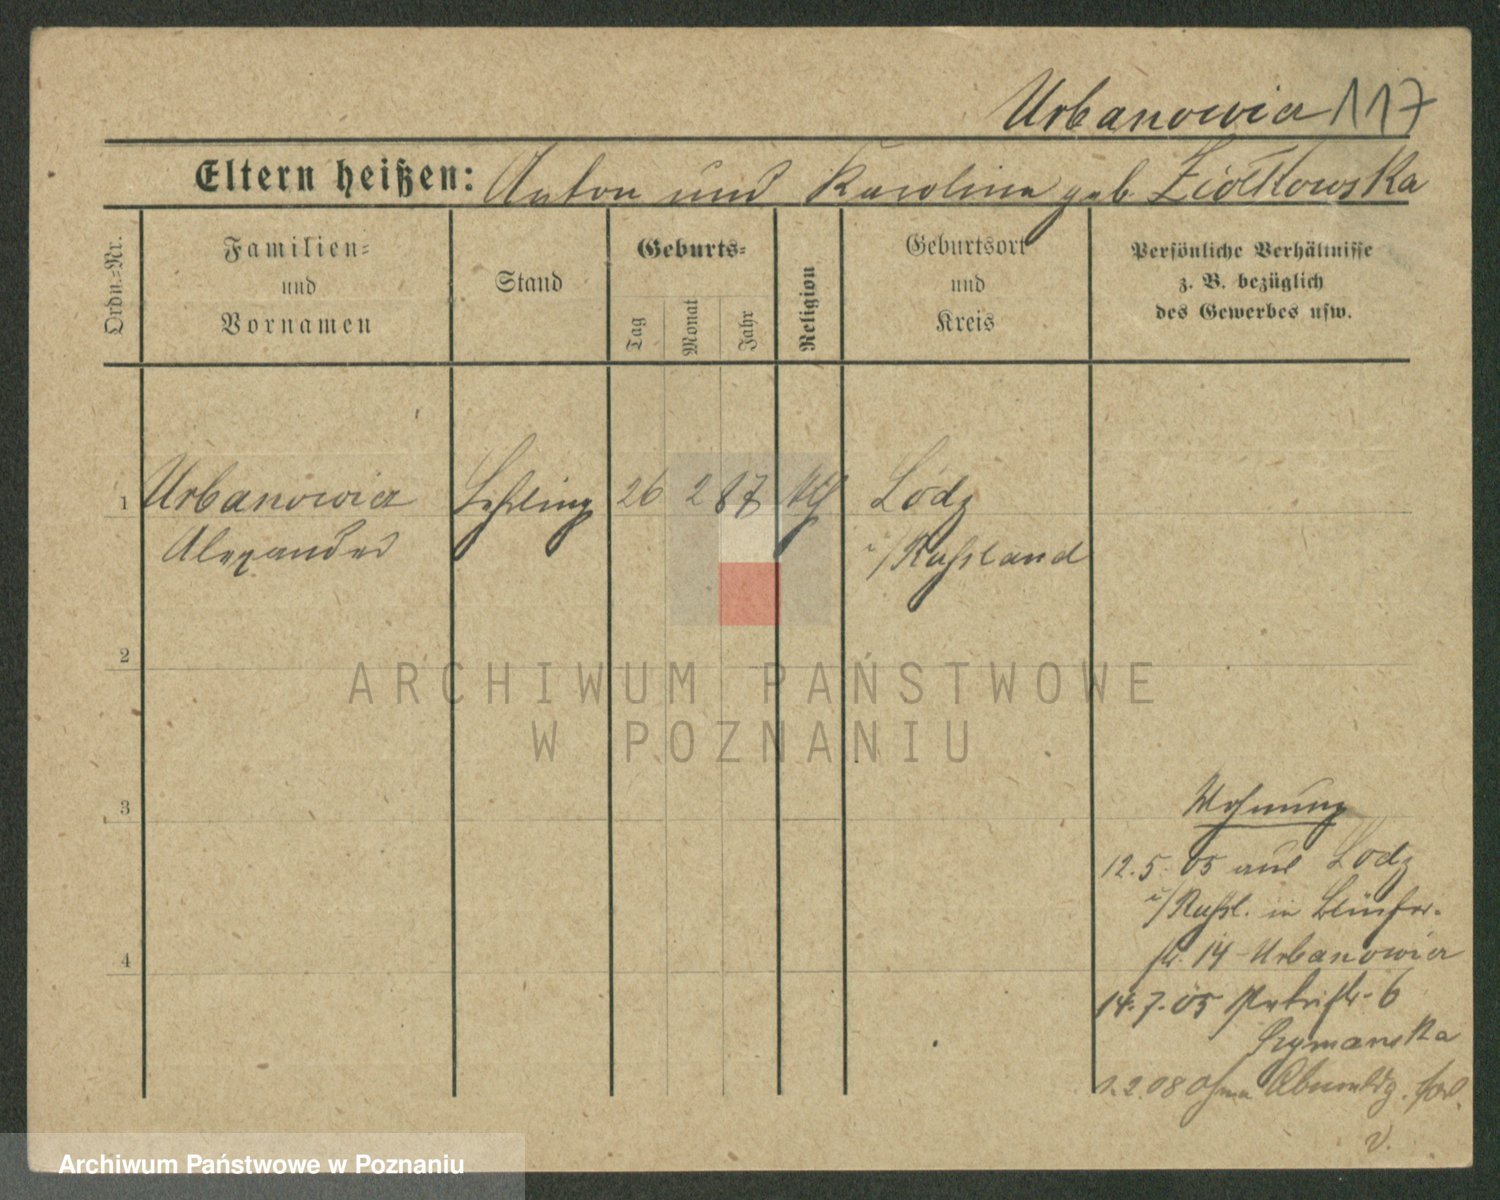 Urbanowicz 117
Eltern heißen: Anton und Karolina geb Ziółkowska
Ordn.=Nr.
Familien=
und
Vornamen
Stand
Geburts=
Tag
Monat
Jahr
Religion
Geburtsort
und
Kreis
Persönliche Verhältnisse
z. B. bezüglich
des Gewerbes usw.
1 Urbanowicz Lehrling 26 2 87 Lodz
Alexander i/Russland
2
ARCHIWUM PAŃSTWOWE
W POZNANIU
3
Wohnung
12.5.05 aus Lodz
i/Russl. in
str. 14 Urbanowicz
4
14.7.05 Petristr. 6
Szymanska
1.2.08 ohne Abmeldg. fort
v.
Archiwum Państwowe w Poznaniu